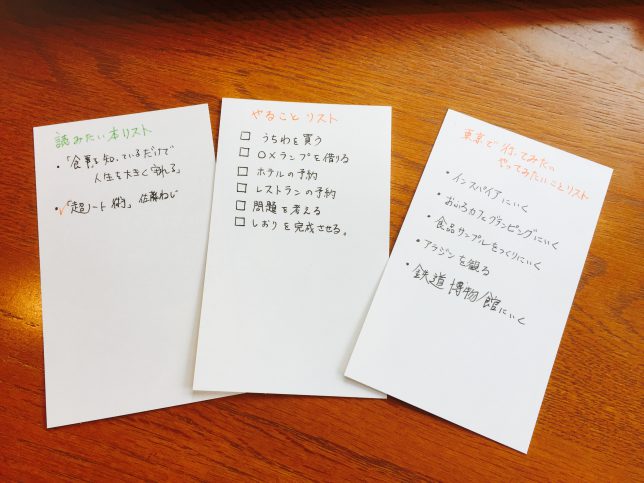 読みたい本リスト
・「食事を知っているだけで
人生を大きく守れる」
・「超ノート術」佐藤ねじ
やることリスト
□ うちわを買う
□ ○×ランプを借りる
□ ホテルの予約
□ レストランの予約
□ 問題を考える
□ しおりを完成させる。
東京で行ってみたい
やってみたいことリスト
・インスパイアにいく
・おふろカフェグランピングにいく
・食品サンプルをつくりにいく
・アラジンを観る
・鉄道博物館にいく